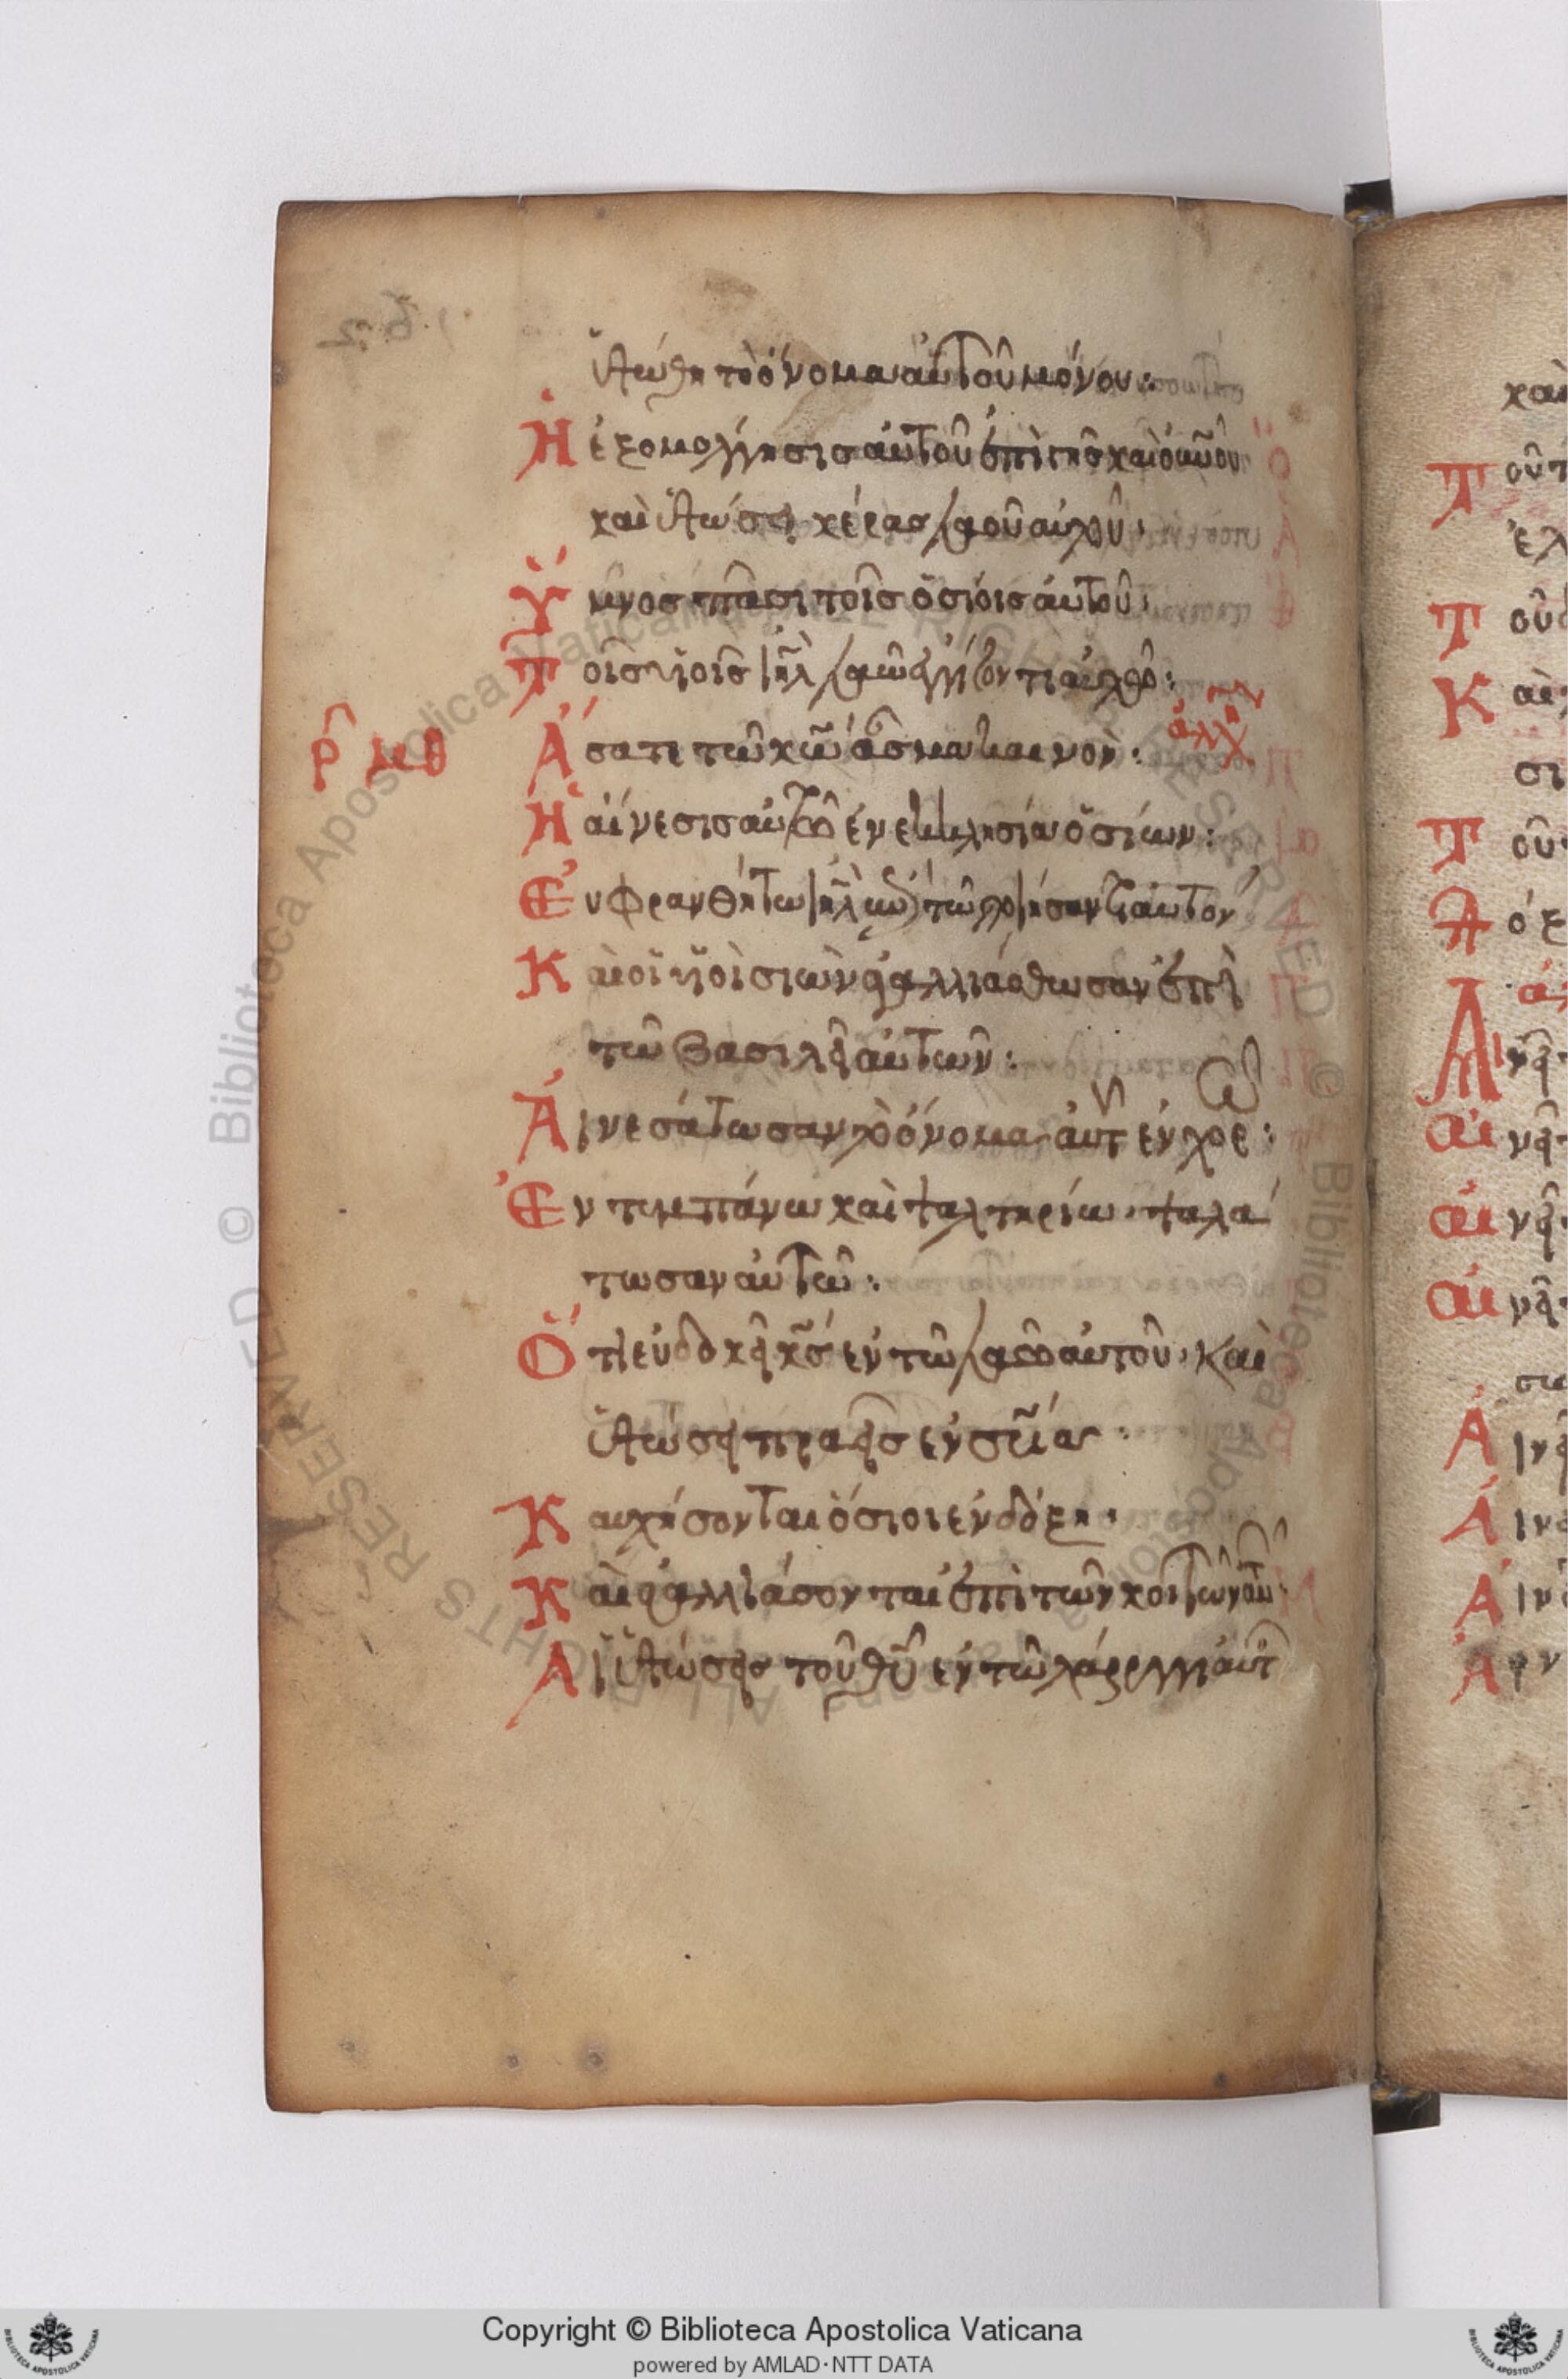 ὑψώθη τὸ ὄνομα αὐτοῦ μόνου:
Ἡ ἐξομολόγησισ αὐτοῦ ἐπὶ γῆσ καὶ οὐνοῦ
καὶ ὑψώσει κέρασ λαοῦ αὐτοῦ·
Ὕμνοσ πᾶσι τοῖσ ὁσίοισ αὐτοῦ·
Τοῖσ υἱοῖσ ιηλ λαῶ ἐγγίζοντι αὐτῶ:
ρμθ Ἄσατε τῶ κω ἆσμα καινόν: ἀλλ
Ἡ αἴνεσισ αὐτοῦ ἐν ἐκκλησία ὁσίων:
Εὐφρανθήτω ιηλ ἐπὶ τῶ ποιήσαντι αὐτὸν
Καὶ οἱ υἱοὶ σιὼν ἀγαλλιάσθωσαν ἐπὶ
τῶ βασιλεῖ αὐτῶν:
Αἰνεσάτωσαν τὸ ὄνομα αὐτ ἐν χορ:
Ἐν τυμπάνω καὶ ψαλτηρίω ψαλά
τωσαν αὐτῶ:
Ὅτι εὐδοκεῖ κσ ἐν τῶ λαῶ αὐτοῦ· καὶ
ὑψώσει πραεῖσ ἐν σρία·
Καυχήσονται ὅσιοι ἐν δόξη·
Καὶ ἀγαλλιάσονται ἐπὶ τῶν κοιτῶν αὐτῶν·
Αἱ ὑψώσεισ τοῦ θυ ἐν τῶ λάρυγγι αὐτ
Copyright © Biblioteca Apostolica Vaticana
powered by AMLAD·NTT DATA